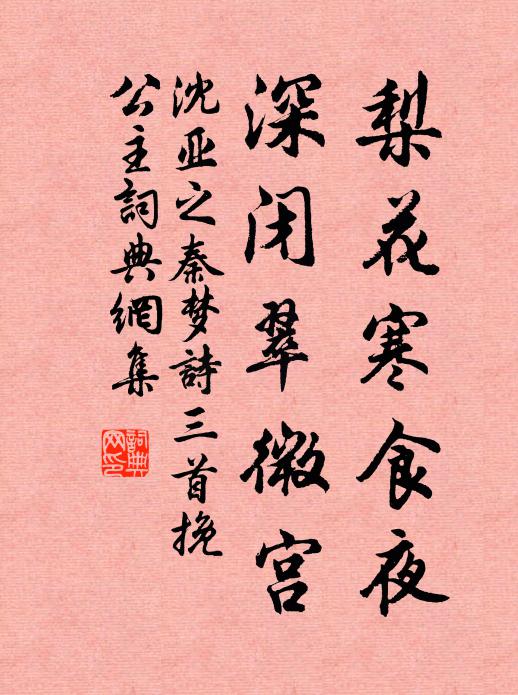 梨花寒食夜
深闭翠微宫
沈亚之秦梦詩三首挽
公主詞典網集
詞典网印